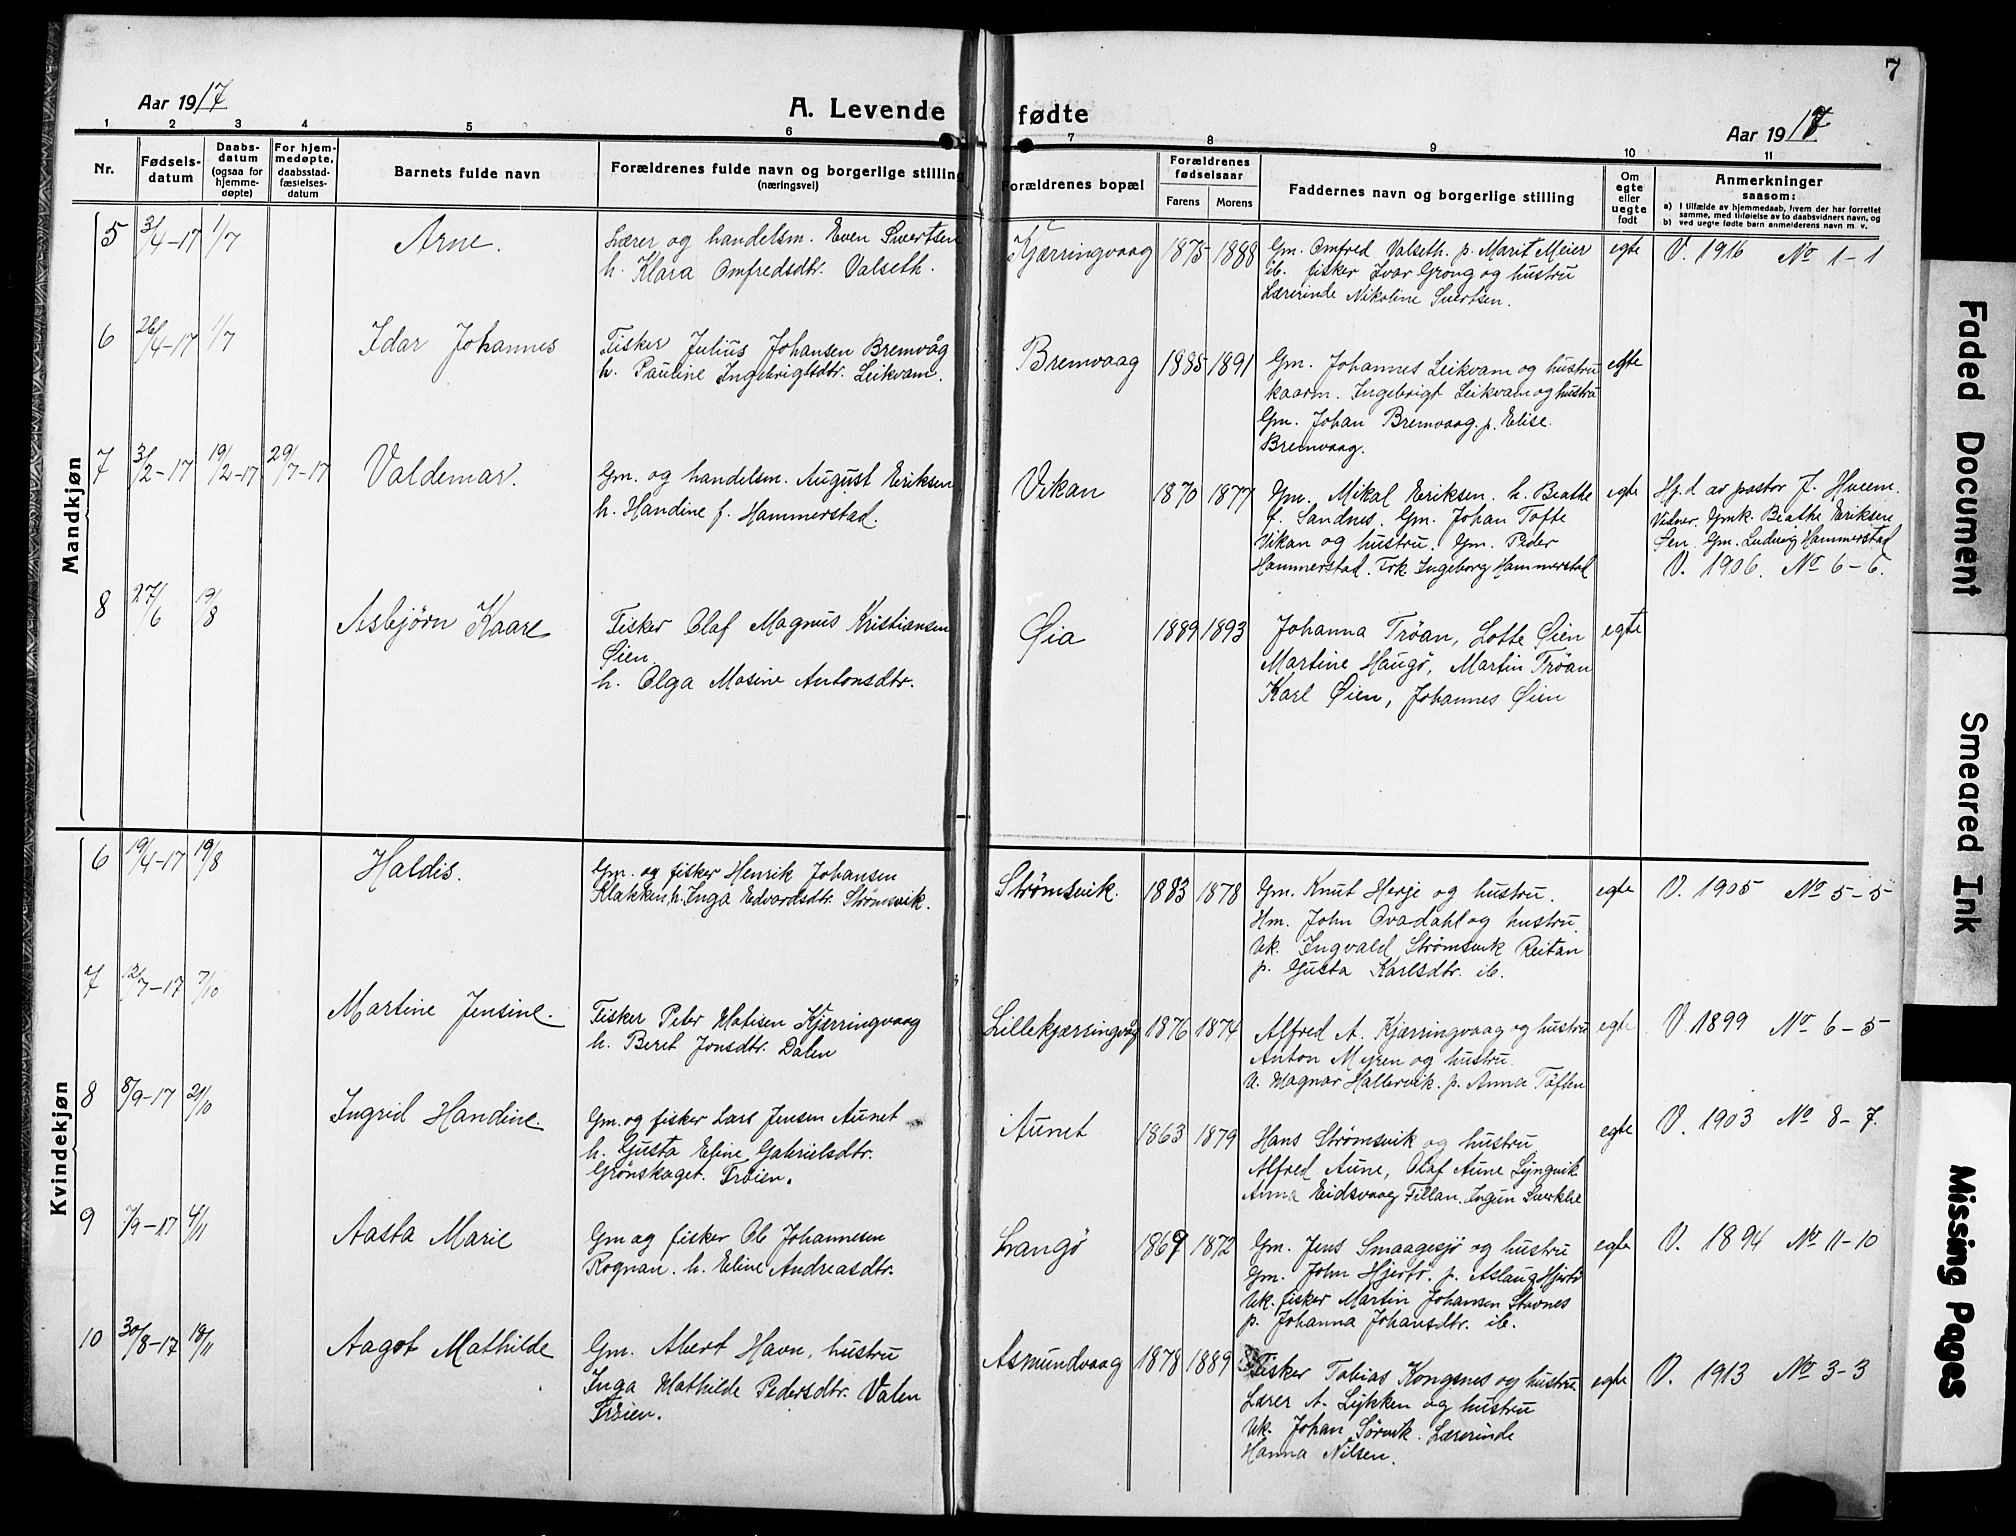 7
Aar 1917
A. Levende fødte
Aar 1917
1 2 3 4 5 6 7 8 9 10 11
Nr.
Fødsels-
datum
Daabs-
datum
(ogsaa for
hjemme-
døpte)
For hjem-
medøpte,
daabsstad-
fæstelses-
datum
Barnets fulde navn
Forældrenes fulde navn og borgerlige stilling
(næringsvei)
Forældrenes bopæl
Forældrenes
fødselsaar
Farens Morens
Faddernes navn og borgerlige stilling
Om
egte
eller
uegte
født
Anmerkninger
saasom:
a) I tilfælde av hjemmedaab, hvem der har forrettet
samme, med tilføielse av to daabsvidners navn, og
b) ved uegte fødte barn anmelderens navn m. v.
Mandkjøn
5 3/4-17 1/7 Arne. Lærer og handelsm. Even Sivertsen
h. Klara Omfredsdtr. Valseth.
Kjærringvaag 1875 1888
Gm. Omfred Valseth. p. Marit Meier
ib. fisker Ivar Grong og hustru
Lærerinde Nikoline Sivertsen.
egte V. 1916 No 1-1
6 26/4-17 1/7 Idar Johannes Fisker Julius Johansen Bremvåg
h. Pauline Ingebrigtsdtr. Leikvam.
Bremvaag 1885 1891
Gm. Johannes Leikvam og hustru
kaarm. Ingebrigt Leikvam og hustru
Gm. Johan Bremvaag. p. Elise
Bremvaag.
egte
7 3/2-17 19/2-17 29/7-17 Valdemar. Gm. og handelsm. August Eriksen
h. Handine f. Hammerstad.
Vikan 1870 1877
Gm. Mikal Eriksen. h. Beathe
f. Sandnes. Gm. Johan Tofte
Vikan og hustru. Gm. Peder
Hammerstad. Frk Ingeborg Hammerstad
egte Hj.d av pastor J. Hveem.
Vidner. Gmk. Beathe Eriksen
Gm. Ludvig Hammerstad
V. 1906. No 6-6.
8 27/6 19/8 Asbjørn Kaare Fisker Olaf Magnus Kristiansen
Øien.
h. Olga Masine Antonsdtr.
Øia 1889 1893
Johanna Trøan, Lotte Øien
Martine Haugø, Martin Trøan
Karl Øien, Johannes Øien
egte
Kvindekjøn
6 19/4-17 19/8 Haldis. Gm. og fisker Henrik Johansen
Klakken, h. Inga Edvardsdtr. Strømsvik.
Strømsvik. 1883 1878
Gm. Knut Herje og hustru.
Hm. John Ovadahl og hustru
Uk. Ingvald Strømsvik Reitan
p. Gusta Karlsdtr. ib.
egte V. 1905 No 5-5
7 12/7-17 7/10 Martine Jensine. Fisker Peter Matisen Kjærringvaag
h. Beret Jonsdtr. Dalen
Lillekjærringvåg 1876 1874
Alfred A. Kjærringvaag og hustru
Anton Myren og hustru
U. Magnar Hallervik. p. Anna Tøften
egte V. 1899 No 6-5
8 8/9-17 21/10 Ingrid Handine. Gm. og fisker Lars Jensen Aunet
h. Gusta Eline Gabrielsdtr.
Grønskaget. Frøien.
Aunet 1863 1879
Hans Strømsvik og hustru
Alfred Aune, Olaf Aune Lyngvik
Anna Eidsvaag Fillan. Ingun
egte V. 1903 No 8-7.
9 7/9-17 4/11 Aasta Marie Gm og fisker Ole Johannesen
Rognan. h. Eline Andreasdtr.
Langø 1869 1872
Gm. Jens Smaagesjø og hustru
Gm. John Hjertø. p. Aslaug Hjertø
Uk. fisker Martin Johansen Stavnes
p. Johanna Johansdtr. ib.
egte V. 1894 No 11-10
10 30/8-17 18/11 Aagot Mathilde Gm. Albert Havn, hustru
Inga Mathilde Pedersdtr. Valen
Frøien.
Asmundvaag 1878 1889
Fisker Tobias Kongsnes og hustru
Lærer A. Lykken og hustru
Uk. Johan Sørvik. Lærerinde
Hanna Nilsen.
egte V. 1913 No 3-3
Faded Document
Smeared Ink
Missing Pages